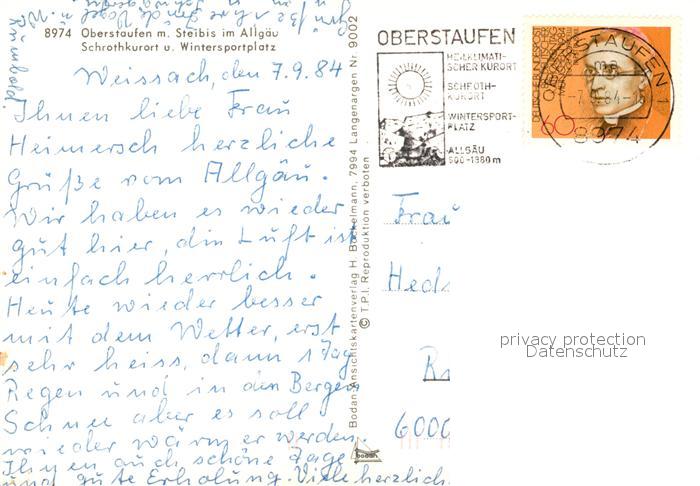 8974 Oberstaufen m. Steibis im Allgäu
Schrothkurort u. Wintersportplatz
Weissach, den 7.9.84
Ihnen liebe Frau
Heimersch herzliche
Grüße vom Allgäu.
Wir haben es wieder
gut hier, die Luft ist
einfach herrlich.
Heute wieder besser
mit dem Wetter, erst
sehr heiss, dann 1 Tag
Regen und in den Bergen
Schnee aber es soll
wieder wärmer werden.
Ihnen auch schöne Tage
und gute Erholung. Viele herzlich
Reinhold.
Bodan Ansichtskartenverlag H. Bockelmann, 7994 Langenargen Nr. 9002
© T.P.I. Reproduktion verboten
bodan
OBERSTAUFEN
HEILKLIMATI-
SCHER KURORT
SCHROTH-
KURORT
WINTERSPORT-
PLATZ
ALLGÄU
800-1380 m
DEUTSCHE BUNDESPOST
60
OBERSTAUFEN 1
8974
Frau
Hed
6000
privacy protection
Datenschutz